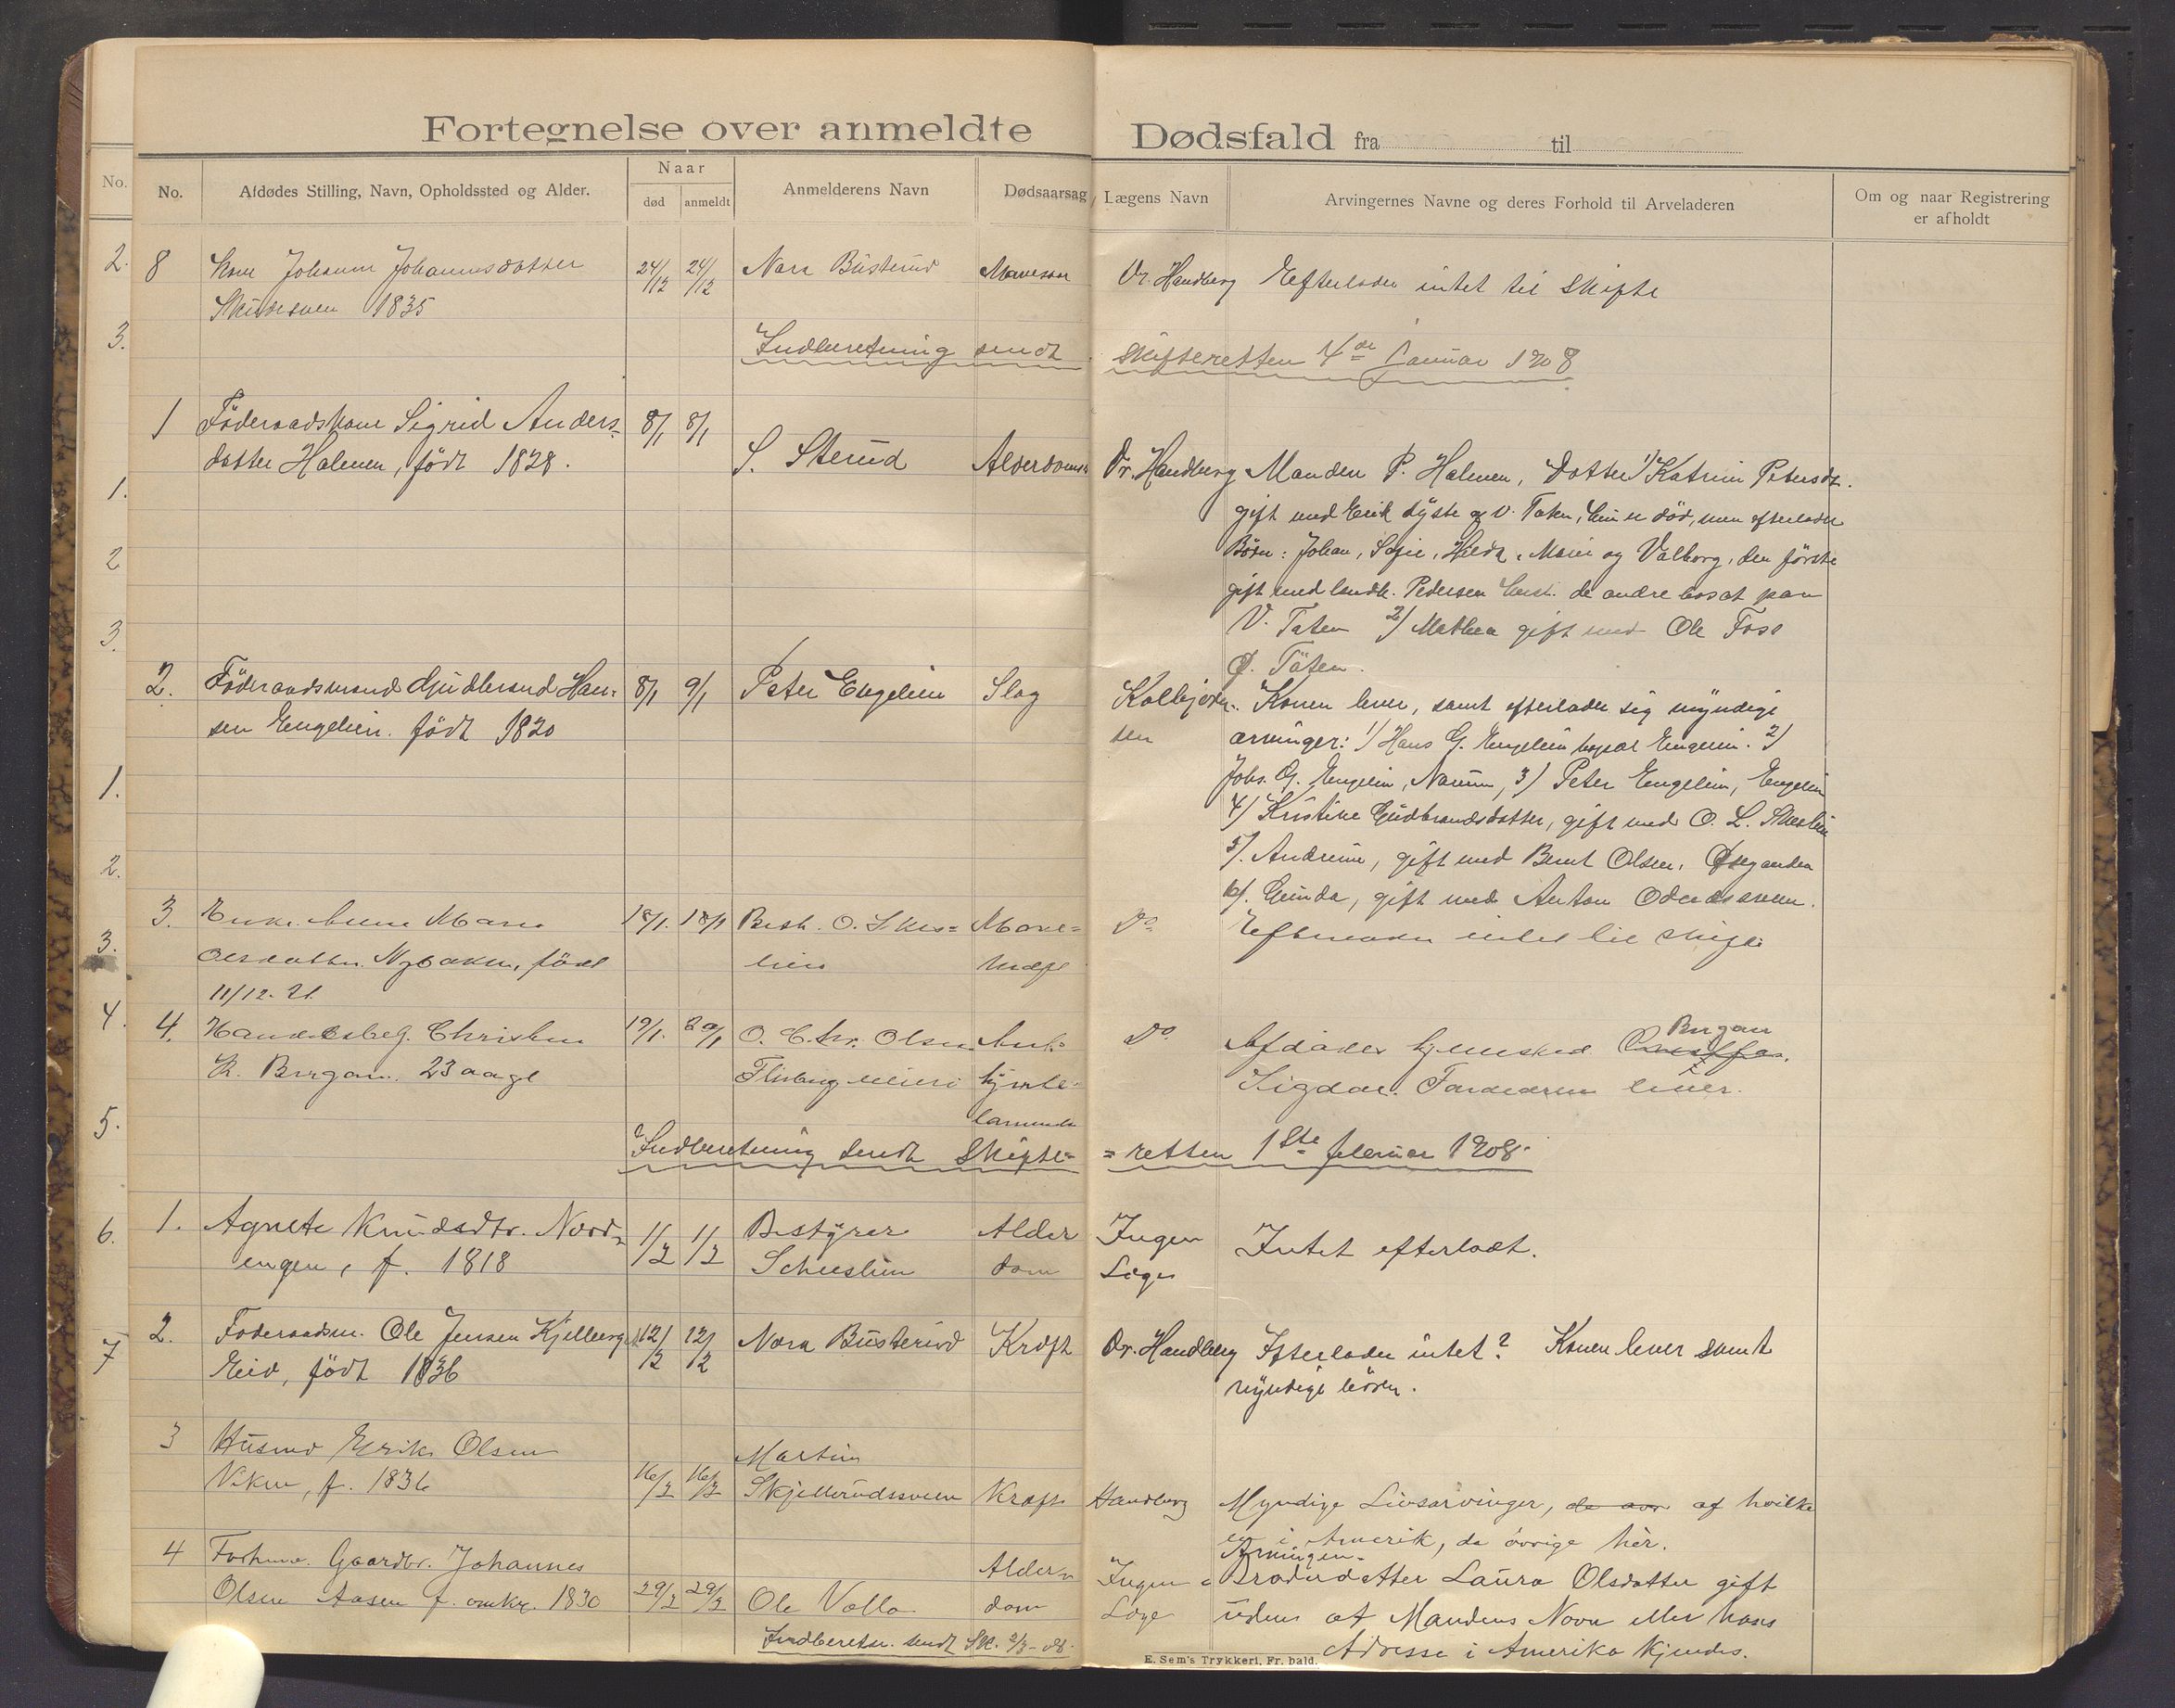 Fortegnelse over anmeldte Dødsfald fra til
No.
No. Afdødes Stilling, Navn, Opholdssted og Alder. Naar død anmeldt Anmelderens Navn Dødsaarsag Lægens Navn Arvingernes Navne og deres Forhold til Arveladeren Om og naar Registrering er afholdt
2.
3.
1.
2
3.
1.
2.
3.
4.
5.
6.
7
8 Kone Johanne Johannesdatter 24/12 24/12 Nora Busterud Dr. Handberg Efterlader intet til skifte
1835
Indberetning sendt skifteretten 4de Januar 1908
1 Föderaadskone Sigrid Anders- 8/1 8/1
datter Halmen, födt 1828. S. Sterud Alderdomssv. Dr. Handberg Manden P. Halmen, Datter 1) Katrine Petersdt.
gift med Erik Lyste V. Toten, hun er död, men efterlader
Börn: Johan, Sofie, Hilda, Marie og Valborg, den förste
gift med landh. Pedersen de andre bosat paa
V. Toten 2) Mathea gift med Ole Foss
Ø. Töten.
2. Föderaadsmand Gudbrand Han- 8/1 9/1 Peter Engelien Slag Kolbjörn- Konen lever, samt efterlader sig myndige
sen Engelien. födt 1820 sen arvinger: 1) Hans G. Engelien bopæl Engelien. 2)
Johs. G. Engelien, 3) Peter Engelien, Engelien
4) Kristine Gudbrandsdatter, gift med O. L.
5). Andrine, gift med Bernt Olsen,
6). Gunda, gift med Anton
3. Enke Anne Marie 18/1. 18/1 Best. O. Skes= Mave= Do Efterlader intet til skifte
Olsdatter Nybakken, födt lien kræft
11/12. 21
4. Handelsbetj. Christen 19/1. 20/1 O. Chr. Olsen Do Afdödes hjemsted Bergan
K. Bergan. 23 aagl meieri Sigdal. Forældrene lever.
Indberetning sendt Skifte= =retten 1ste februar 1908.
1. Agnete Knudsdtr. Nord- 1/2 1/2 Bestyrer Alder Ingen Intet efterladt.
engen, f. 1818 Scheslien dom Læge
2. Föderaadsm. Ole Jensen Kjelberg 12/2 12/2 Nora Busterud Kræft Dr. Handberg Efterlader intet? Konen lever samt
Eid, födt 1836 myndige börn.
3 Husmd Erik Olsen Martin
Viken, f. 1836 16/2 16/2 Skjellerudsveen Kræft Handberg Myndige Livsarvinger, af hvilke
en i Amerik, de øvrige her.
4 Gaardbr. Johannes Alder- Ingen Arvingen- Broderdatter Laura Olsdatter gift
Olsen Aasen f. omkr. 1830 29/2 29/2 Ole Volla dom Læge uden at Mandens Navn eller hans
Indberetn. sendt Sk. 2/3-08. Adresse i Amerika kjendes.
E. Sem's Trykkeri, Fr. hald.